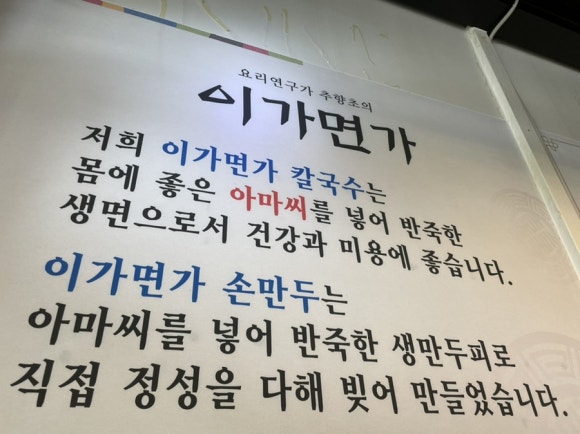 요리연구가 추향초의
이가면가
저희 이가면가 칼국수는
몸에 좋은 아마씨를 넣어 반죽한
생면으로서 건강과 미용에 좋습니다.
이가면가 손만두는
아마씨를 넣어 반죽한 생만두피로
직접 정성을 다해 빚어 만들었습니다.